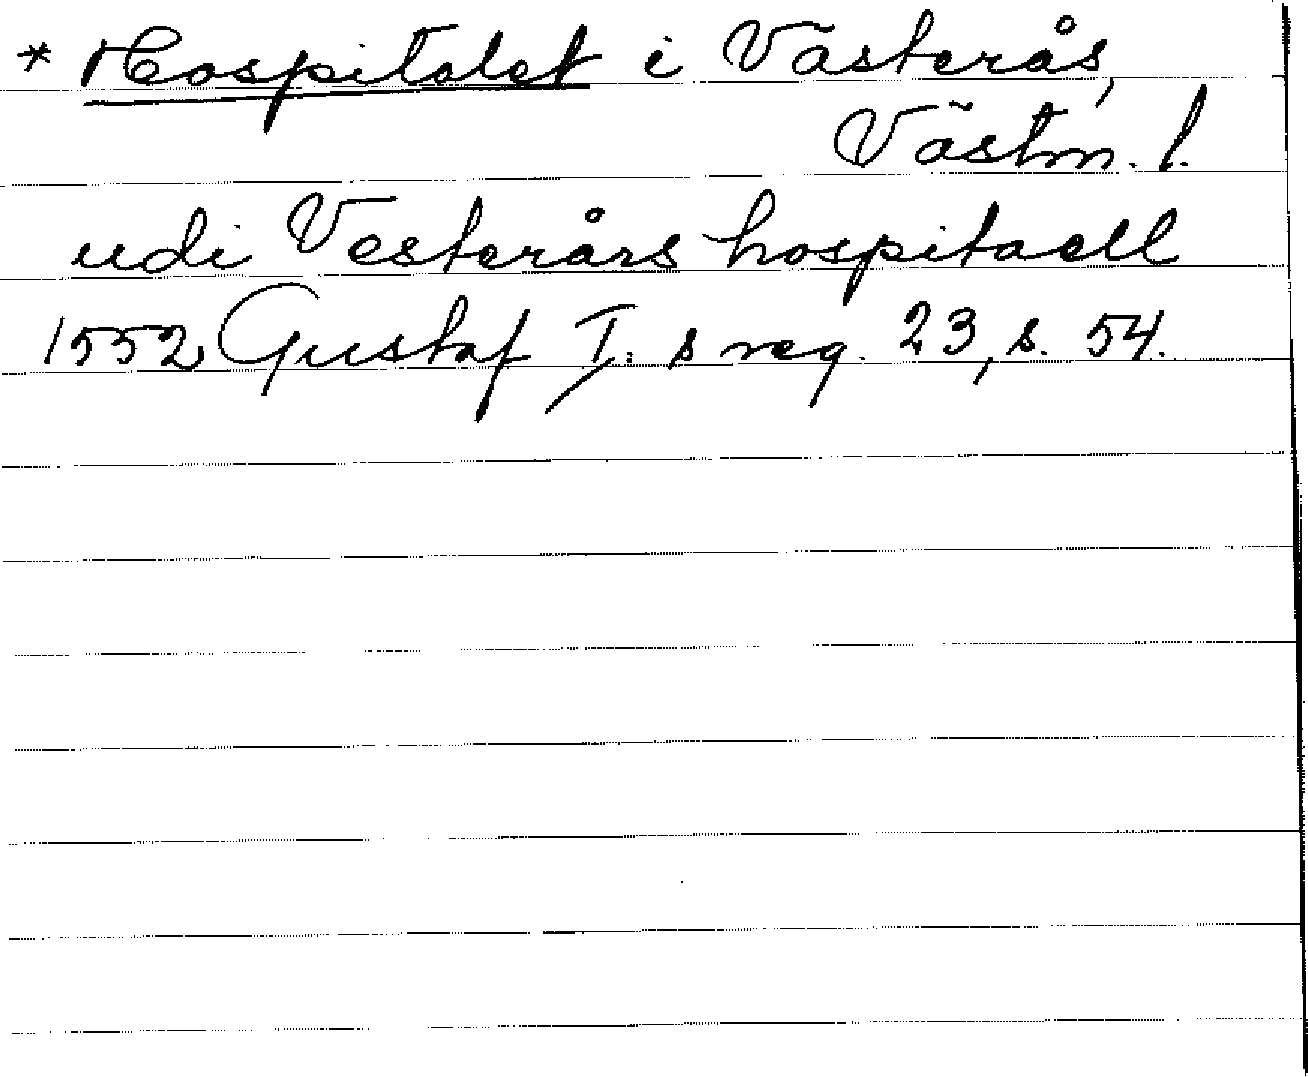 * Hospitalet i Västerås,
Västm. l.
udi Vesterårs hospitaell
1552 Gustaf I:s reg. 23, s. 54.